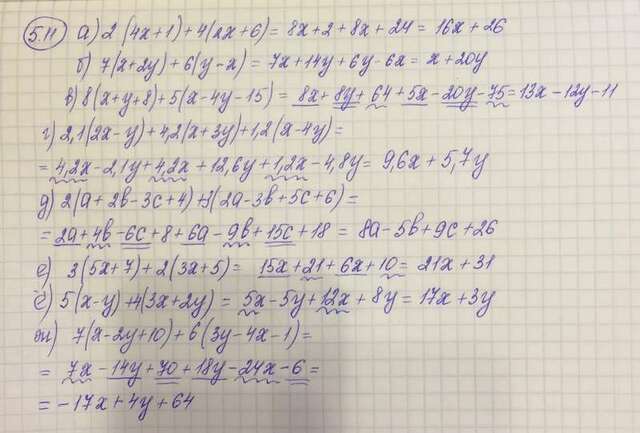 5.11 а) 2(4x+1)+4(2x+6)= 8x+2+8x+24= 16x+26
б) 7(x+2y)+6(y-x)= 7x+14y+6y-6x= x+20y
в) 8(x+y+8)+5(x-4y-15)= 8x+8y+64+5x-20y-75=13x-12y-11
г) 2,1(2x-y)+4,2(x+3y)+1,2(x-4y)=
= 4,2x-2,1y+4,2x+12,6y+1,2x-4,8y= 9,6x+5,7y
д) 2(a+2b-3c+4)+3(2a-3b+5c+6)=
= 2a+4b-6c+8+6a-9b+15c+18= 8a-5b+9c+26
е) 3(5x+7)+2(3x+5)= 15x+21+6x+10= 21x+31
ё) 5(x-y)+4(3x+2y)= 5x-5y+12x+8y= 17x+3y
ж) 7(x-2y+10)+6(3y-4x-1)=
= 7x-14y+70+18y-24x-6=
= -17x+4y+64